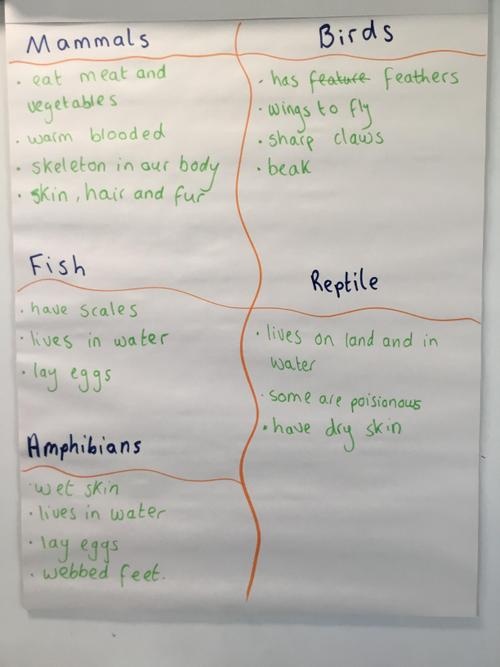 Mammals
• eat meat and
vegetables
• warm blooded
• skeleton in our body
• skin, hair and fur
Birds
• has feature feathers
• wings to fly
• sharp claws
• beak
Fish
• have scales
• lives in water
• lay eggs
Reptile
• lives on land and in
water
• some are poisionous
• have dry skin
Amphibians
• wet skin
• lives in water
• lay eggs
• webbed feet.